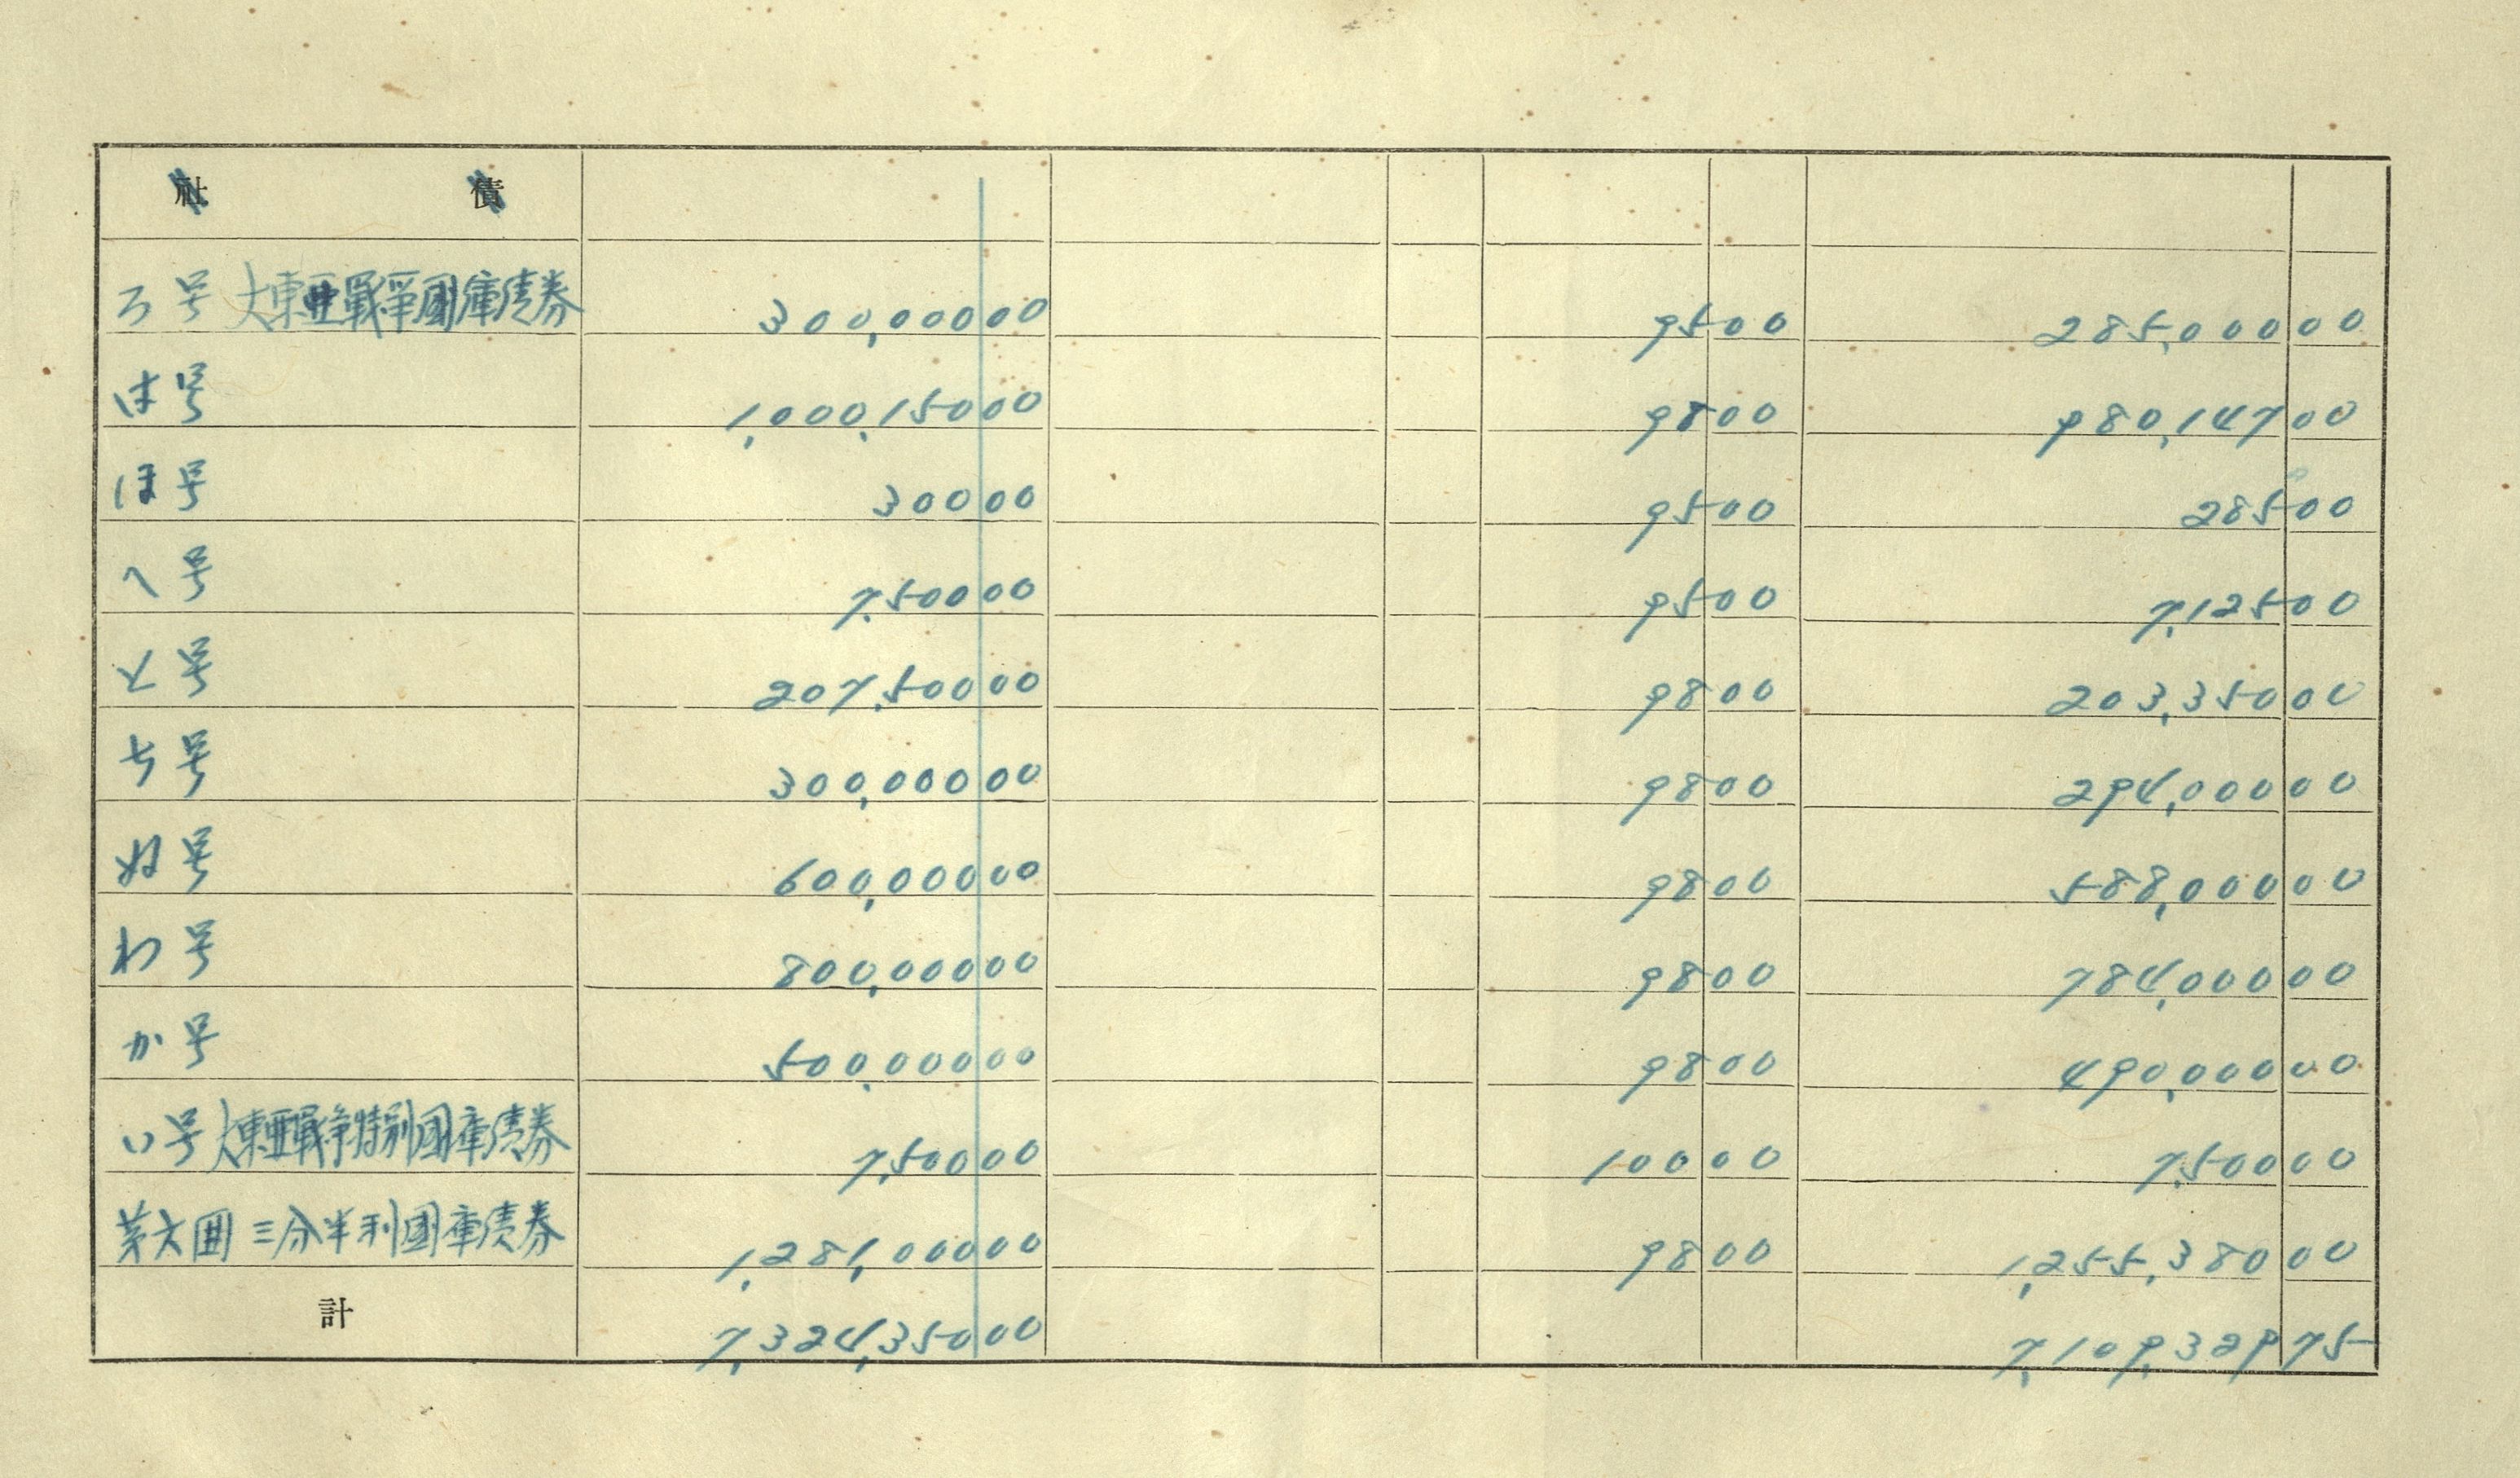 社債
ろ号 大東亜戰爭國庫債券 300,000 00 95 00 285,000 00
は号 1,000,150 00 98 00 980,147 00
ほ号 300 00 95 00 285 00
へ号 7,500 00 95 00 7,125 00
と号 207,500 00 98 00 203,350 00
ち号 300,000 00 98 00 294,000 00
ぬ号 600,000 00 98 00 588,000 00
わ号 800,000 00 98 00 784,000 00
か号 500,000 00 98 00 490,000 00
い号 大東亜戰争特別國庫債券 7,500 00 100 00 7,500 00
第六回 三分半利國庫債券 1,281,000 00 98 00 1,255,380 00
計 7,324,350 00 7,109,329 75